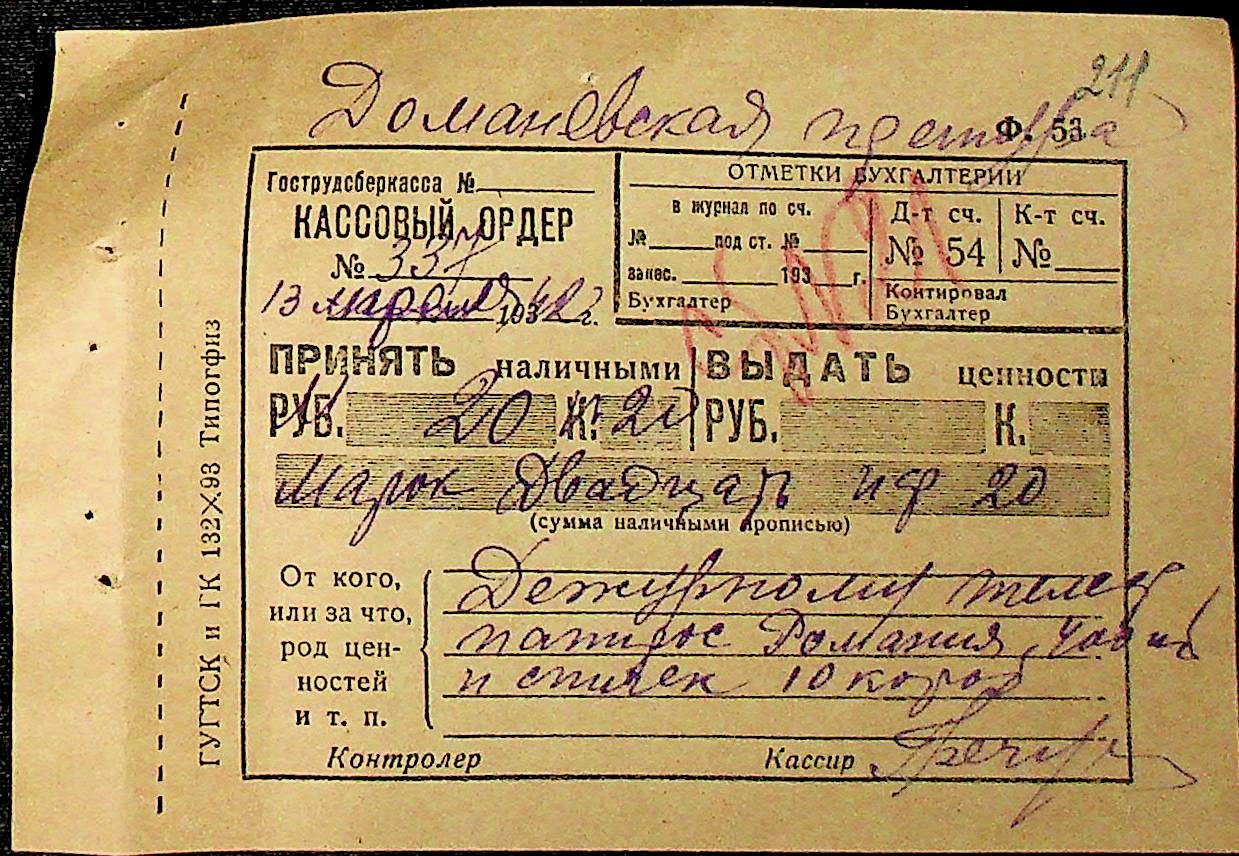 211
Доманевская претура
Ф. 53
Гострудсберкасса №
КАССОВЫЙ ОРДЕР
№ 337
13 марта 1942 г.
ОТМЕТКИ БУХГАЛТЕРИИ
в журнал по сч.
№ под ст. №
занес. 193 г.
Бухгалтер
Д-т сч.
№ 54
К-т сч.
№
Контировал
Бухгалтер
ПРИНЯТЬ наличными
РУБ. 20 К. 20
ВЫДАТЬ ценности
РУБ. К.
Марок Двадцать пф 20
(сумма наличными прописью)
От кого,
или за что,
род цен-
ностей
и т. п.
Дежурному телеф
папирос Романия
и спичек 10 короб
Контролер
Кассир
ГУГТСК и ГК 132×93 Типогфиз